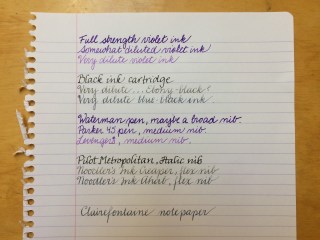 Full strength violet ink
Somewhat diluted violet ink
Very dilute violet ink
Black ink cartridge
Very dilute... Ebony-black?
Very dilute blue-black ink
Waterman pen, maybe a broad nib.
Parker 45 pen, medium nib.
Levenger, medium nib.
Pilot Metropolitan, Italic nib
Noodler's Ink Creaper, flex nib
Noodler's Ink Ahab, flex nib
Clairefontaine notepaper